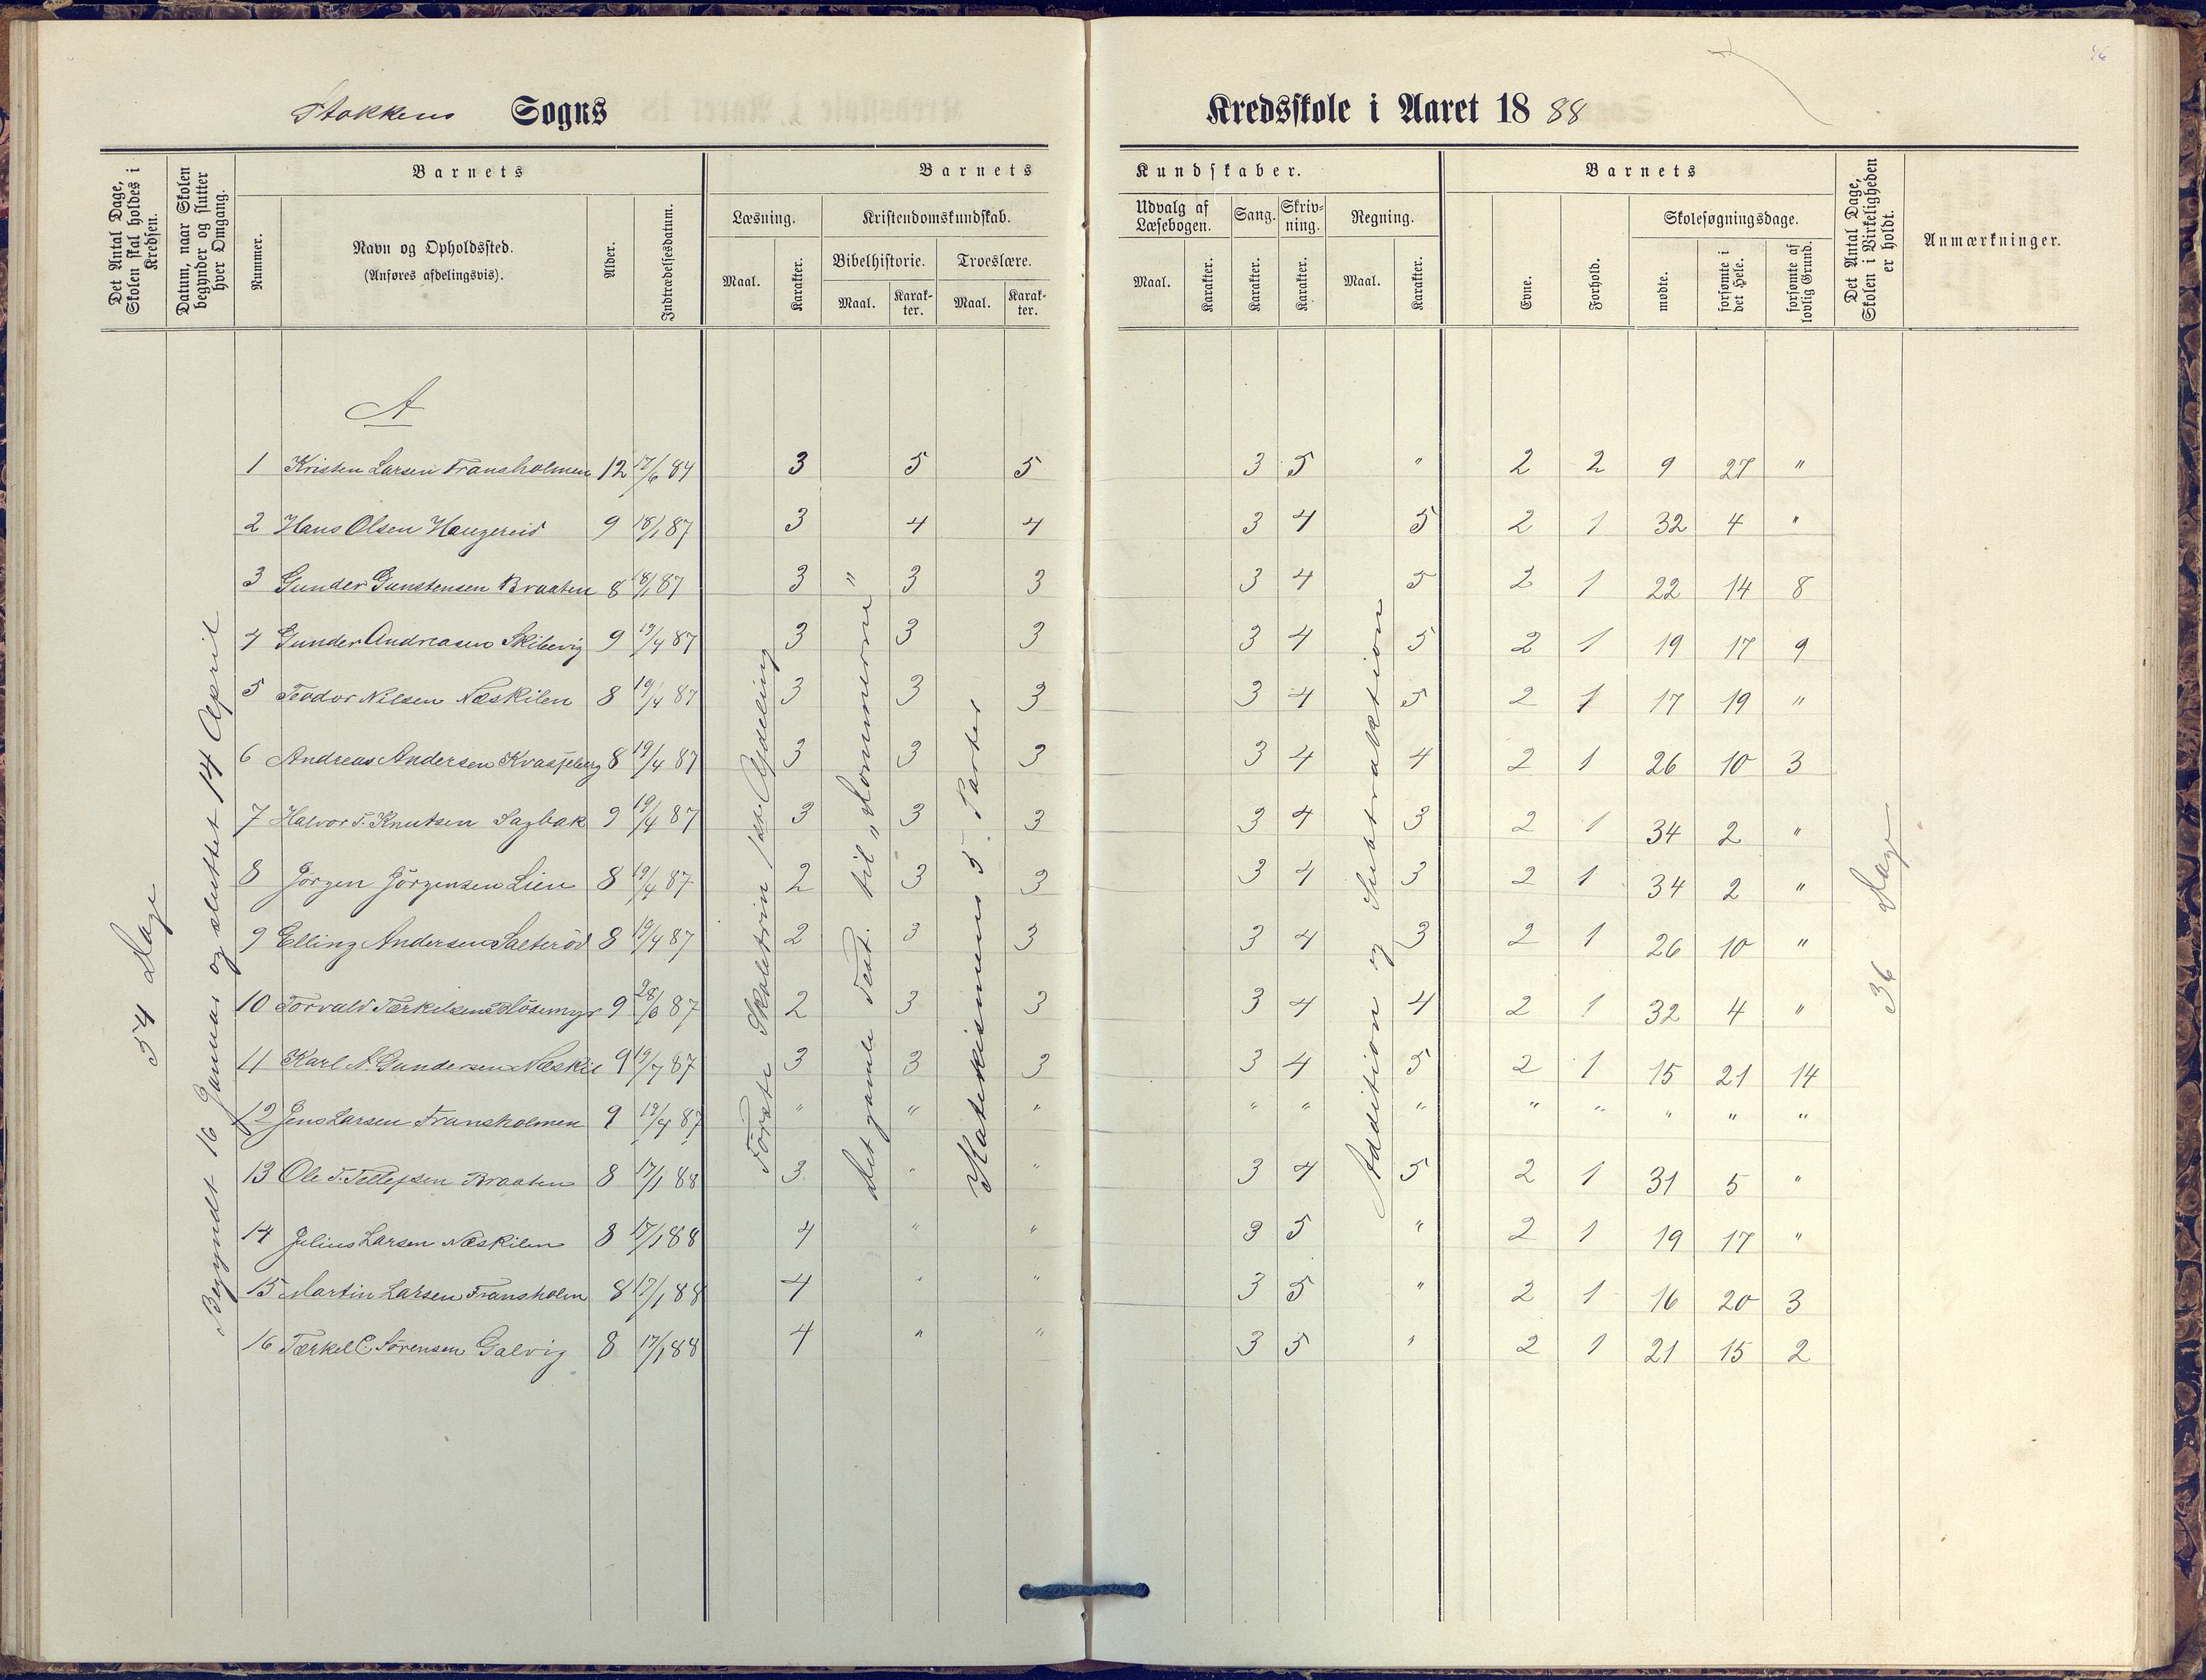 46
Stokkens Sogns
Kredsskole i Aaret 1888
Det Antal Dage, Skolen skal holdes i Kredsen.
Datum, naar Skolen begynder og slutter hver Omgang.
Barnets
Nummer.
Navn og Opholdssted.
(Anføres afdelingsvis).
Alder.
Indtrædelsesdatum.
Barnets
Læsning.
Maal.
Karakter.
Kristendomskundskab.
Bibelhistorie.
Maal.
Karakter.
Troeslære.
Maal.
Karakter.
Kundskaber.
Udvalg af Læsebogen.
Maal.
Karakter.
Sang.
Karakter.
Skrivning.
Karakter.
Regning.
Maal.
Karakter.
Barnets
Evne.
Forhold.
Skolesøgningsdage.
mødte.
forsømte i det Hele.
forsømte af lovlig Grund.
Det Antal Dage, Skolen i Virkeligheden er holdt.
Anmærkninger.
54 Dage
Begyndt 16 Januar og sluttet 14 April
A
Første Skoletrin 1ste Afdeling
Det gamle Test. til „Dommerne"
Katekismens 5 Parter
Addition og Subtraktion
36 Dage
1 Kristen Larsen Fransholmen 12 17/6 84 3 5 5 3 5 " 2 2 9 27 "
2 Hans Olsen Haugereid 9 18/1 87 3 4 4 3 4 5 2 1 32 4 "
3 Gunder Gunstensen Braaten 8 18/1 87 3 3 3 3 4 5 2 1 22 14 8
4 Gunder Andreasen Skibvig 9 19/4 87 3 3 3 3 4 5 2 1 19 17 9
5 Teodor Nilsen Næskilen 8 19/4 87 3 3 3 3 4 5 2 1 17 19 "
6 Andreas Andersen 8 19/4 87 3 3 3 3 4 4 2 1 26 10 3
7 Halvor T. Knutsen Sagbak 9 19/4 87 3 3 3 3 4 3 2 1 34 2 "
8 Jörgen Jörgensen Lien 8 19/4 87 2 3 3 3 4 3 2 1 34 2 "
9 Elling Andersen Salteröd 8 19/4 87 2 3 3 3 4 3 2 1 26 10 "
10 Torvald Tærkelsen Blösemyr 9 28/6 87 2 3 3 3 4 4 2 1 32 4 "
11 Karl N. Gundersen Næskil 9 19/7 87 3 3 3 3 4 5 2 1 15 21 14
12 Jens Larsen Fransholmen 9 19/4 87 " " " " " " " " " " "
13 Ole T. Tellefsen Braaten 8 17/1 88 3 " " 3 4 5 2 1 31 5 "
14 Julius Larsen Næskilen 8 17/1 88 4 " " 3 5 " 2 1 19 17 "
15 Martin Larsen Fransholm 8 17/1 88 4 " " 3 5 " 2 1 16 20 3
16 Tærkel C Sörensen Galvig 8 17/1 88 4 " " 3 5 " 2 1 21 15 2